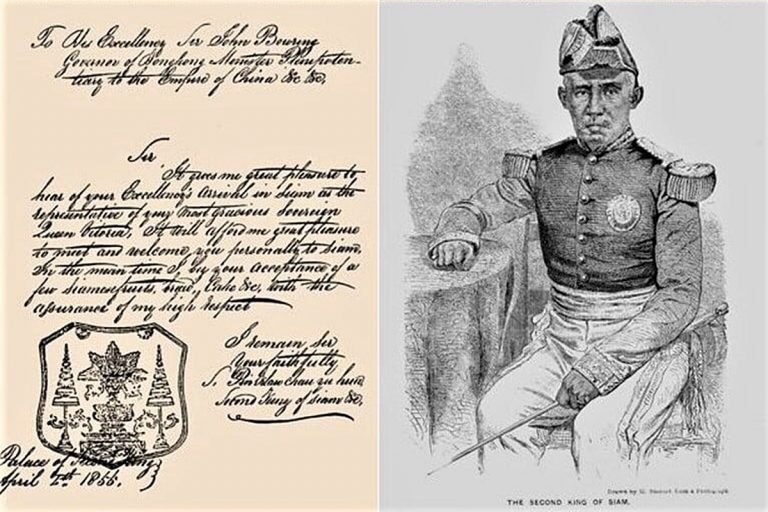 To His Excellency Sir John Bowring
Govenor of Hongkong Menister Plenipoten-
tiary to the Empire of China &c &c,
Sir
It gives me great pleasure to
hear of your Excellency's arrival in Siam as the
representative of your Most Gracious Sovereign
Queen Victoria, It will afford me great pleasure
to meet and welcome you personally to Siam,
In the mean time I, beg your acceptance of a
few siamese fruits, bread, Cake &c, with the
assurance of my high respect
I remain Sir
Your faithfully
S. Pin Klau Chau
Second King of Siam &c,
Palace of Second King
April 2d 1855.
Drawn by from a Photograph
THE SECOND KING OF SIAM.